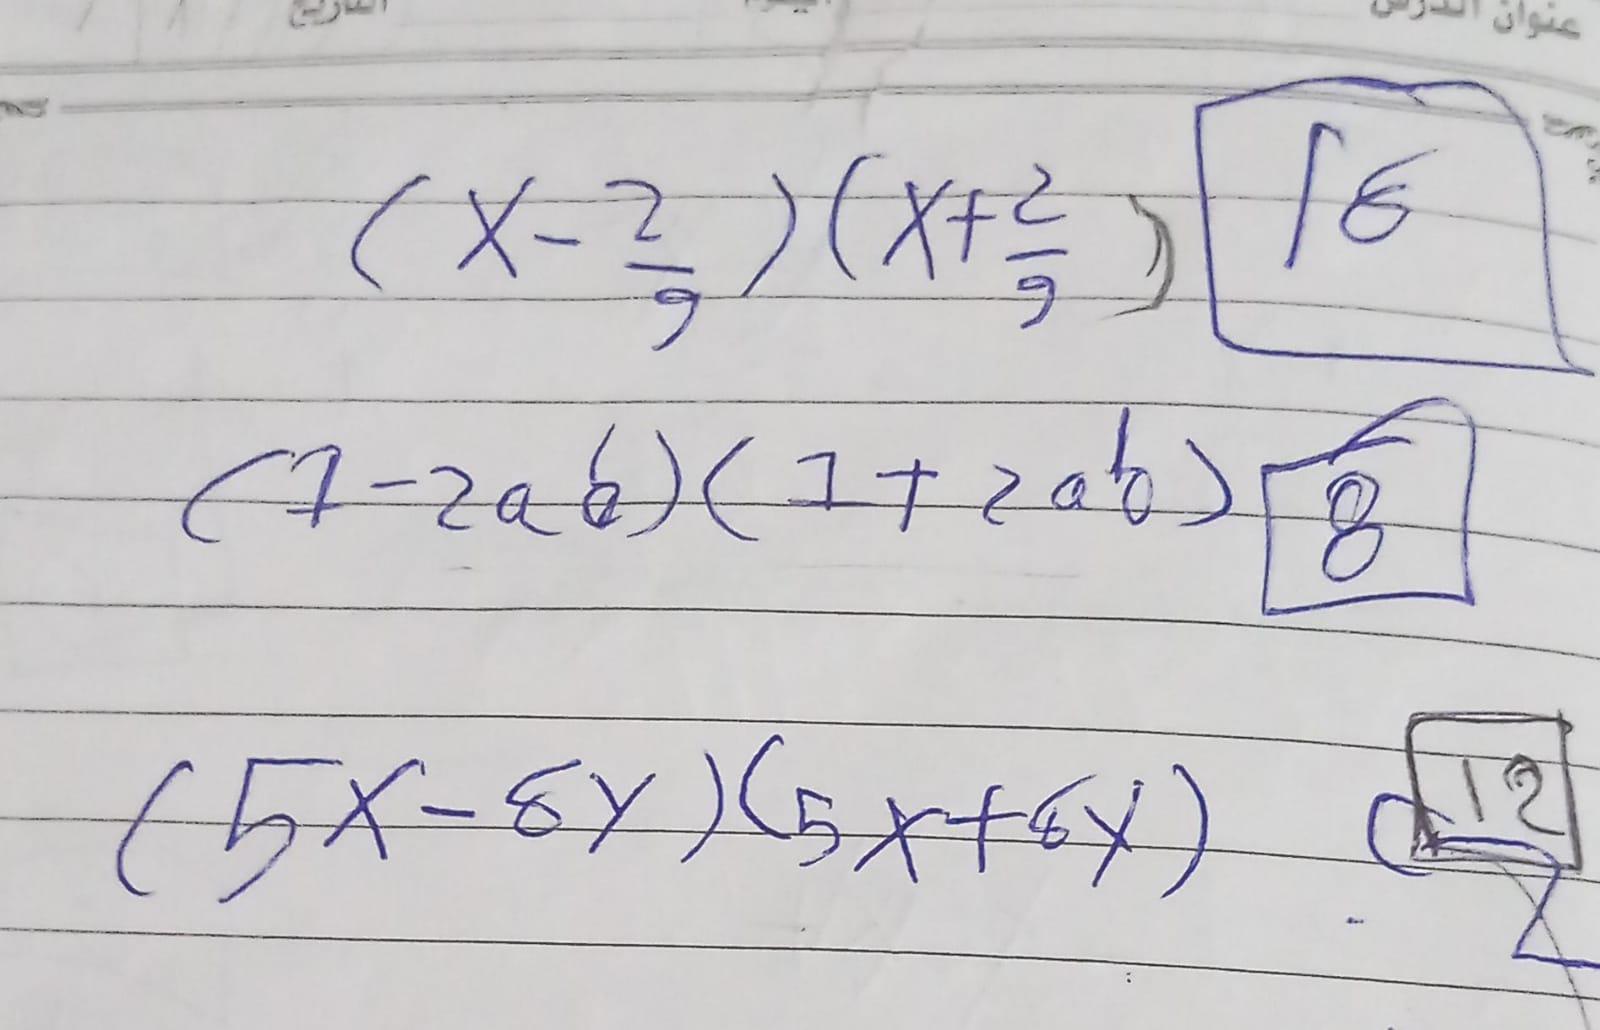 عنوان الدرس اليوم التاريخ / /
(x - 2/9)(x + 2/9) 16
(1 - 2ab)(1 + 2ab) 8
(5x - 6y)(5x + 6y) 12